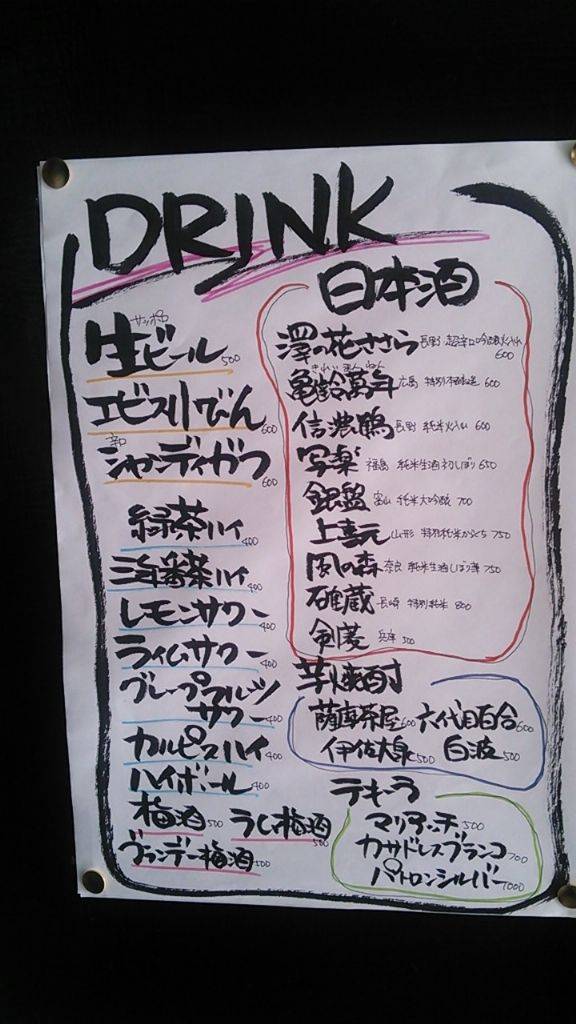 DRINK
サッポロ
生ビール 500
エビス小びん 600
辛口
シャンディガフ 600
緑茶ハイ 400
三年番茶ハイ 400
レモンサワー 400
ライムサワー 400
グレープフルーツ
サワー 400
カルピスハイ 400
ハイボール 400
梅酒 500 うし梅酒 500
ブランデー梅酒 500
日本酒
澤の花ささら 長野 超辛口吟醸火入れ 600
きれい まん ねん
亀齢萬年 広島 特別 600
信濃鶴 長野 純米火入れ 600
写楽 福島 純米生酒初しぼり 650
銀盤 富山 純米大吟醸 700
上喜元 山形 特別純米からくち 750
風の森 奈良 純米生酒しぼり華 750
碓蔵 長崎 特別純米 800
剣菱 兵庫 500
芋焼酎
薩摩茶屋 600 六代目百合 600
伊佐大泉 500 白波 500
テキーラ
マリアッチ 500
カサドレスブランコ 700
パトロンシルバー 1000